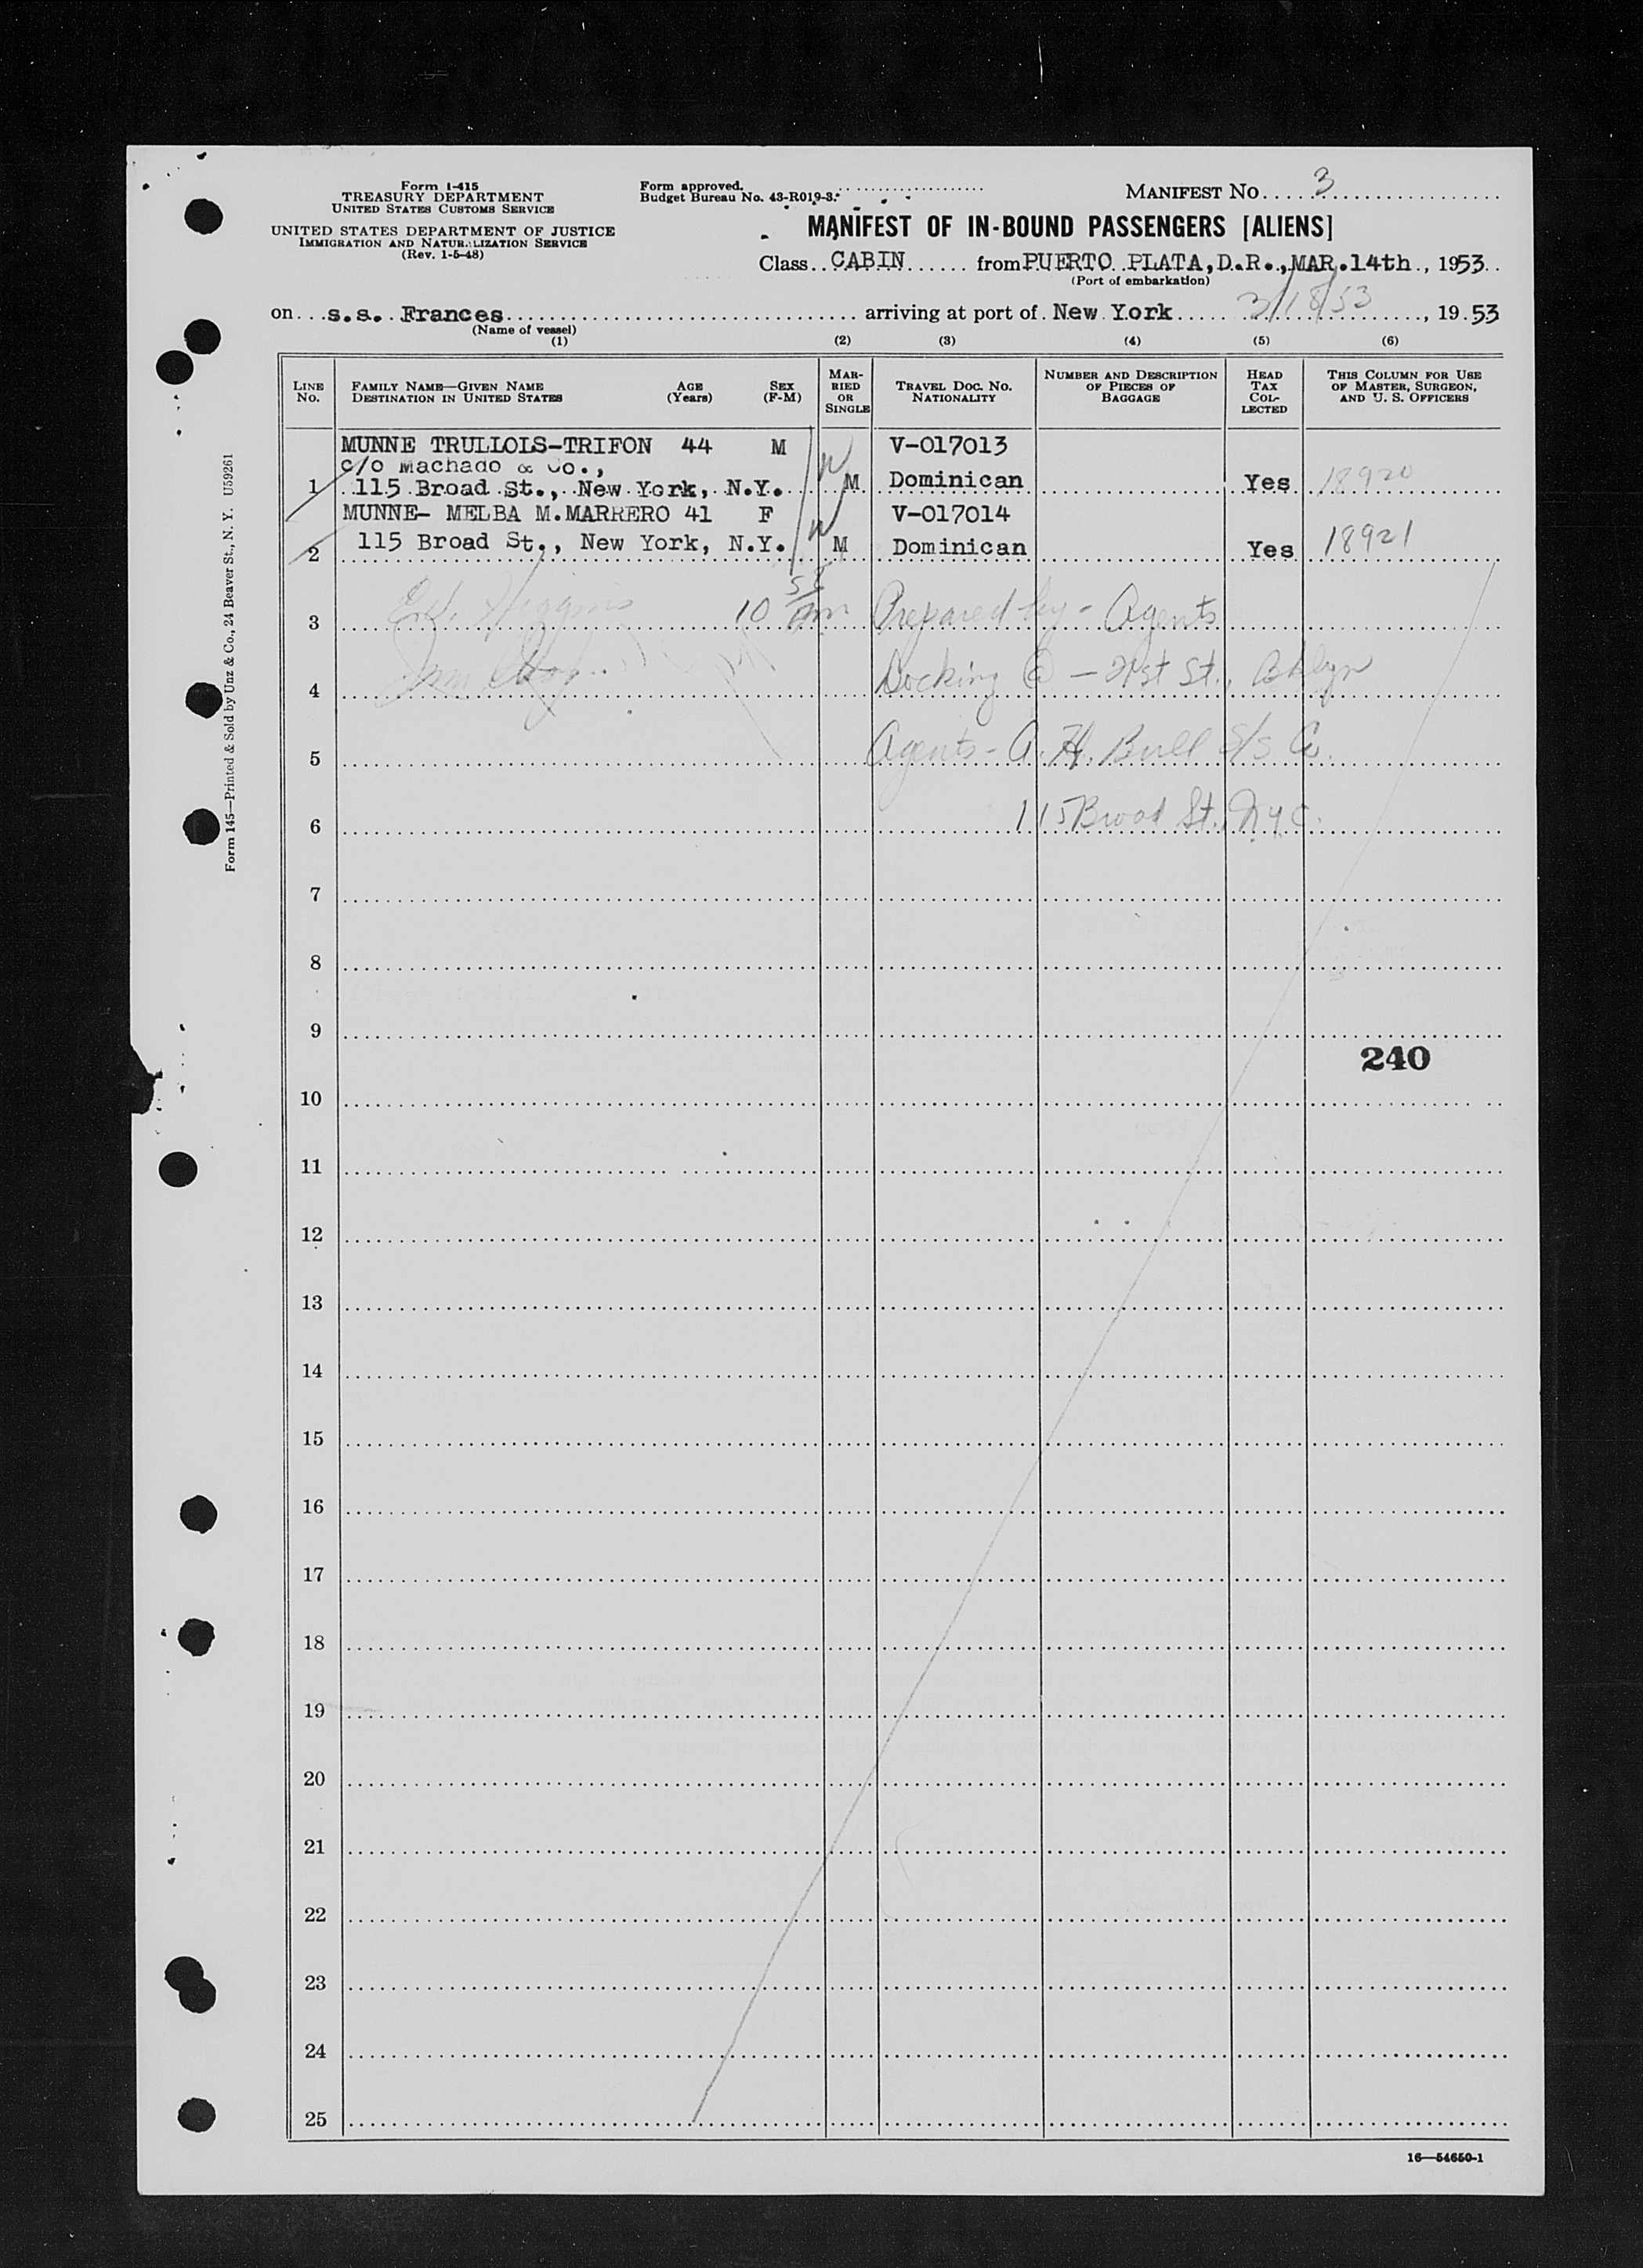 Form I-415
TREASURY DEPARTMENT
UNITED STATES CUSTOMS SERVICE
UNITED STATES DEPARTMENT OF JUSTICE
IMMIGRATION AND NATURALIZATION SERVICE
(Rev. 1-5-48)
Form approved.
Budget Bureau No. 43-R019-3.
MANIFEST NO. 3
MANIFEST OF IN-BOUND PASSENGERS [ALIENS]
Class CABIN from PUERTO PLATA, D.R., MAR. 14th, 1953
(Port of embarkation)
on s.s. Frances arriving at port of New York 3/18/53, 19 53
(Name of vessel)
(1) (2) (3) (4) (5) (6)
LINE NO. FAMILY NAME—GIVEN NAME DESTINATION IN UNITED STATES AGE (Years) SEX (F-M) MARRIED OR SINGLE TRAVEL DOC. NO. NATIONALITY NUMBER AND DESCRIPTION OF PIECES OF BAGGAGE HEAD TAX COLLECTED THIS COLUMN FOR USE OF MASTER, SURGEON, AND U. S. OFFICERS
MUNNE TRULLOLS-TRIFON 44 M V-017013
c/o Machado & Co.,
1 115 Broad St., New York, N.Y. M Dominican Yes 18920
MUNNE- MELBA M.MARRERO 41 F V-017014
2 115 Broad St., New York, N.Y. M Dominican Yes 18921
3 Ed. Higgins 10 58 am Prepared by - Agents
4 Docking @ - 21st St., Bklyn
5 Agents - A. H. Bull S/S Co.
6 115 Broad St. NYC.
7
8
9
240
10
11
12
13
14
15
16
17
18
19
20
21
22
23
24
25
16—54650-1
Form 145—Printed & Sold by Unz & Co., 24 Beaver St., N. Y. U59261